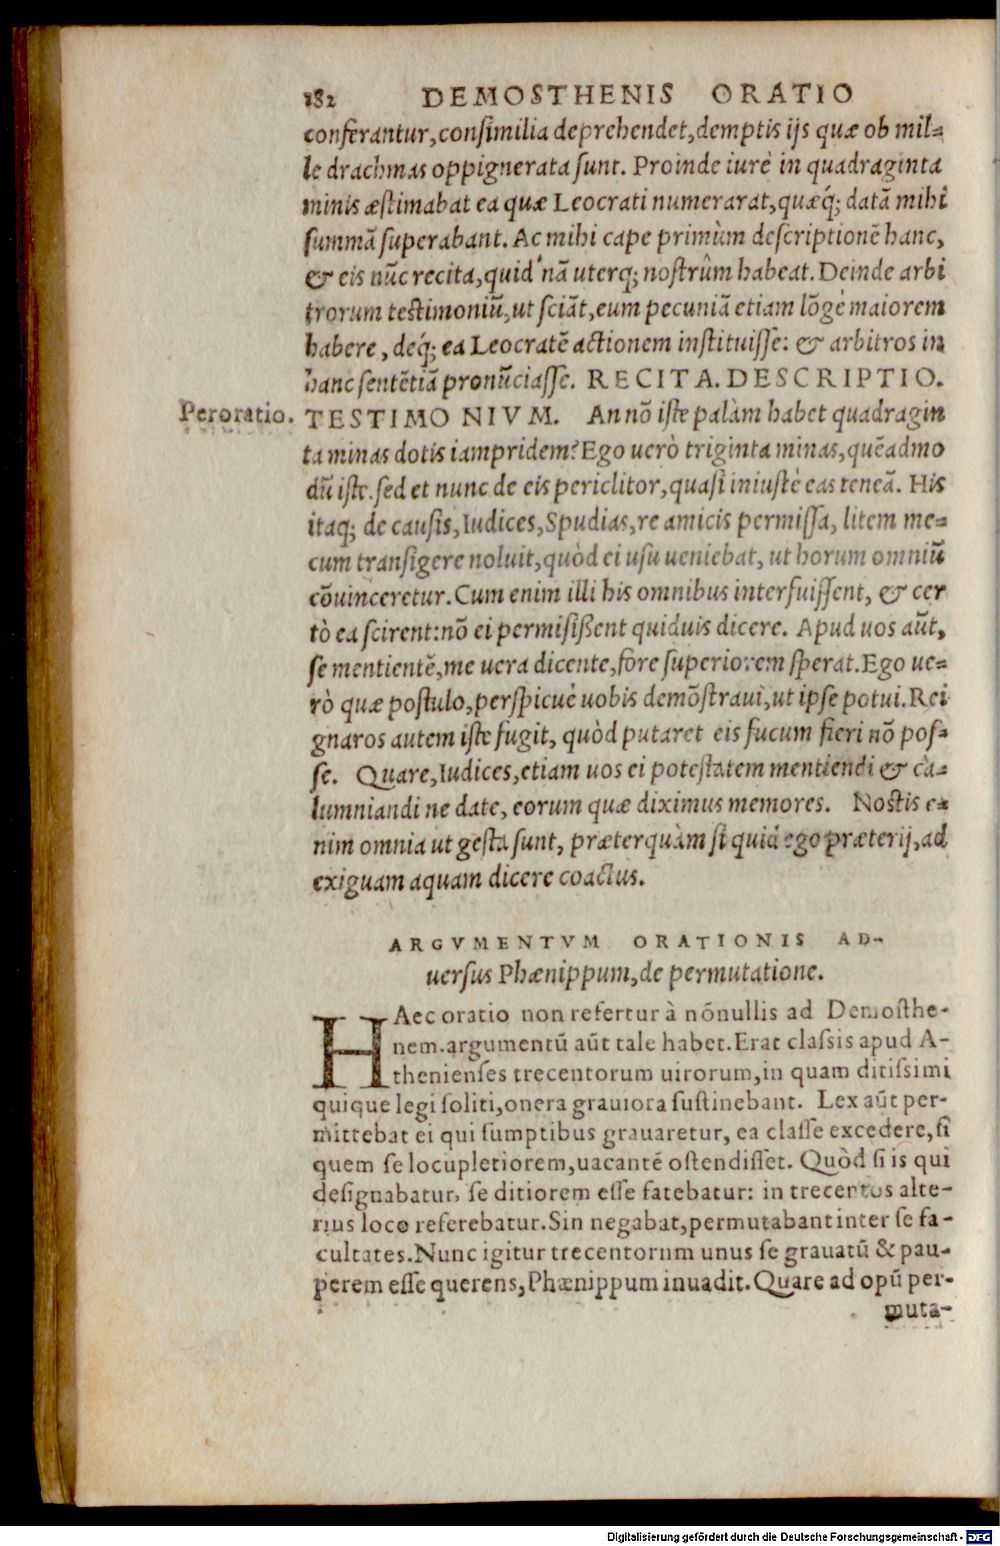 182 DEMOSTHENIS ORATIO
conferantur, consimilia deprehendet, demptis ijs quæ ob mil-
le drachmas oppignerata sunt. Proinde iurè in quadraginta
minis æstimabat ea quæ Leocrati numerarat, quæq́; datā mihi
summā superabant. Ac mihi cape primùm descriptionē hanc,
& eis nūc recita, quid'nā uterq; nostrûm habeat. Deinde arbi
trorum testimoniū, ut sciāt, eum pecuniā etiam lōgè maiorem
habere, deq́; ea Leocratē actionem instituisse: & arbitros in
hanc sentētiā pronūciasse. RECITA. DESCRIPTIO.
Peroratio. TESTIMONIVM. An nō iste palàm habet quadragin
ta minas dotis iampridem? Ego uerò triginta minas, quēadmo
dū iste. sed et nunc de eis periclitor, quasi iniustè eas teneā. His
itaq; de causis, Iudices, Spudias, re amicis permissa, litem me-
cum transigere noluit, quòd ei usu ueniebat, ut horum omniū
cōuinceretur. Cum enim illi his omnibus interfuissent, & cer
tò ea scirent: nō ei permisißent quiduis dicere. Apud uos aūt,
se mentientē, me uera dicente, fore superiorem sperat. Ego ue-
rò quæ postulo, perspicuè uobis demōstraui, ut ipse potui. Rei
gnaros autem iste fugit, quòd putaret eis fucum fieri nō pos-
se. Quare, Iudices, etiam uos ei potestatem mentiendi & ca-
lumniandi ne date, eorum quæ diximus memores. Nostis e-
nim omnia ut gesta sunt, præterquàm si quid ego præterij, ad
exiguam aquam dicere coactus.
ARGVMENTVM ORATIONIS AD-
uersus Phænippum, de permutatione.
HAec oratio non refertur à nōnullis ad Demosthe-
nem. argumentū aūt tale habet. Erat classis apud A-
thenienses trecentorum uirorum, in quam ditissimi
quique legi soliti, onera grauiora sustinebant. Lex aūt per-
mittebat ei qui sumptibus grauaretur, ea classe excedere, si
quem se locupletiorem, uacantē ostendisset. Quòd si is qui
designabatur, se ditiorem esse fatebatur: in trecentos alte-
rius loco referebatur. Sin negabat, permutabant inter se fa-
cultates. Nunc igitur trecentorum unus se grauatū & pau-
perem esse querens, Phænippum inuadit. Quare ad opū per-
muta-
Digitalisierung gefördert durch die Deutsche Forschungsgemeinschaft - DFG